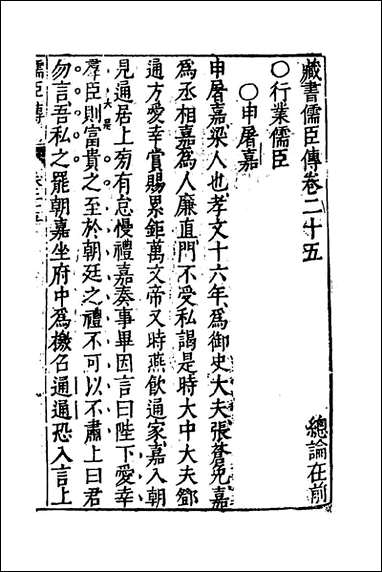 藏書儒臣傳卷二十五
總論在前
○行業儒臣
○申屠嘉
申屠嘉梁人也孝文十六年為御史大夫張蒼免嘉
為丞相嘉為人廉直門不受私謁是時大中大夫鄧
通方愛幸賞賜累鉅萬文帝又時燕飲通家嘉入朝
見通居上旁有怠慢禮嘉奏事畢因言曰陛下愛幸
大是
羣臣則富貴之至於朝廷之禮不可以不肅上曰君
勿言吾私之罷朝嘉坐府中為檄召通通恐入言上
儒臣傳